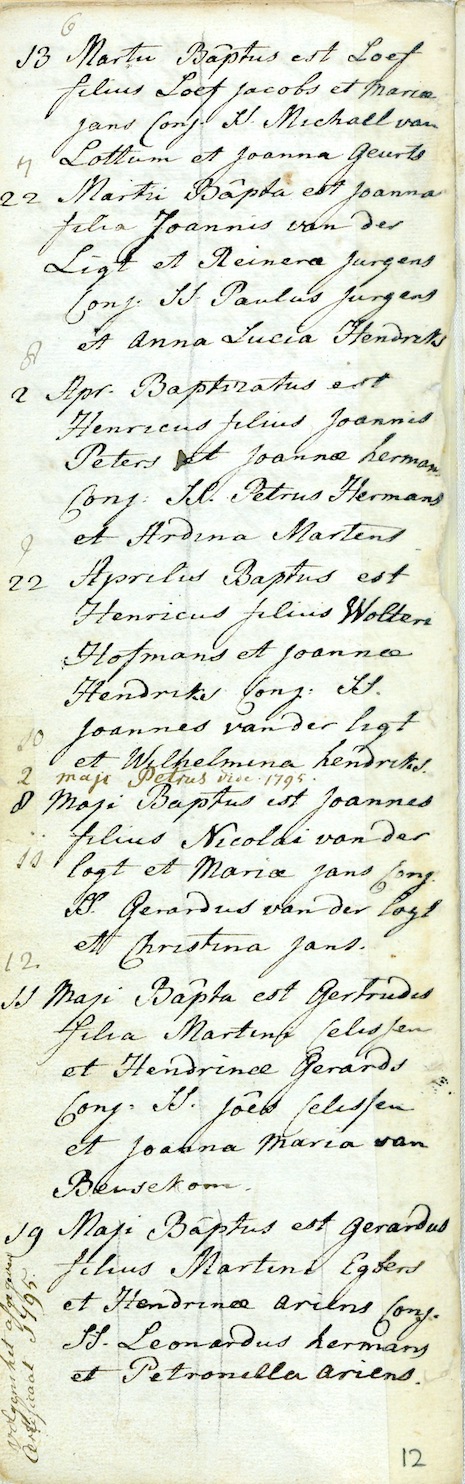 6
13 Martii Bâptus est Loef
filius Loef Jacobs et Mariæ
Jans Conj. SS. Michael van
Lottum et Joanna Geurts
7
22 Martii Bâpta est Joanna
filia Joannis van der
Ligt et Reineræ Jurgens
Conj. SS. Paulus Jurgens
et Anna Lucia Hendriks
8
2 Apr. Baptizatus est
Henricus filius Joannis
Peters et Joannæ herman
Conj. SS. Petrus Hermans
et Ardina Martens
9
22 Aprilis Baptus est
Henricus filius Wolteri
Hofmans et Joannæ
Hendriks Conj. SS.
Joannes van der ligt
10
et Wilhelmina hendriks.
2 maji Petrus 1795.
8 Maji Baptus est Joannes
filius Nicolai van der
11
logt et Mariæ Jans Conj.
SS. Gerardus van der logt
et Christina Jans.
12.
11 Maji Bâpta est Gertrudis
filia Martini Celissen
et Hendrinæ Gerards
Conj. SS. Jôes Celissen
et Joanna Maria van
Beusekom.
19 Maji Bâptus est Gerardus
filius Martini Egbers
et Hendrinæ Ariens Conj.
SS. Leonardus hermans
et Petronella Ariens.
volgens het afgegeven
Certificaat 1795.
12